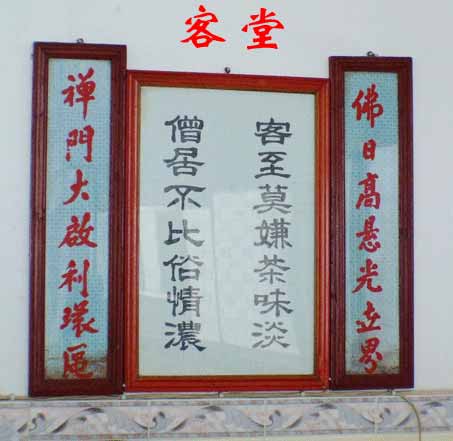 客堂
佛日高悬光世界
客至莫嫌茶味淡
僧居不比俗情濃
禅門大啟利環區